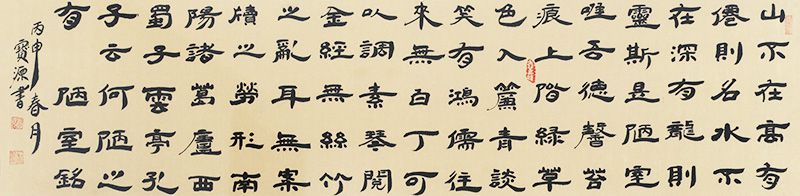 山不在高有
僊則名水不
在深有龍則
靈斯是陋室
唯吾德馨苔
痕上階綠草
色入簾青談
笑有鴻儒往
來無白丁可
以調素琴閱
金經無絲竹
之亂耳無案
牘之勞形南
陽諸葛廬西
蜀子雲亭孔
子云何陋之
有 陋室銘
丙申春月
寶源書